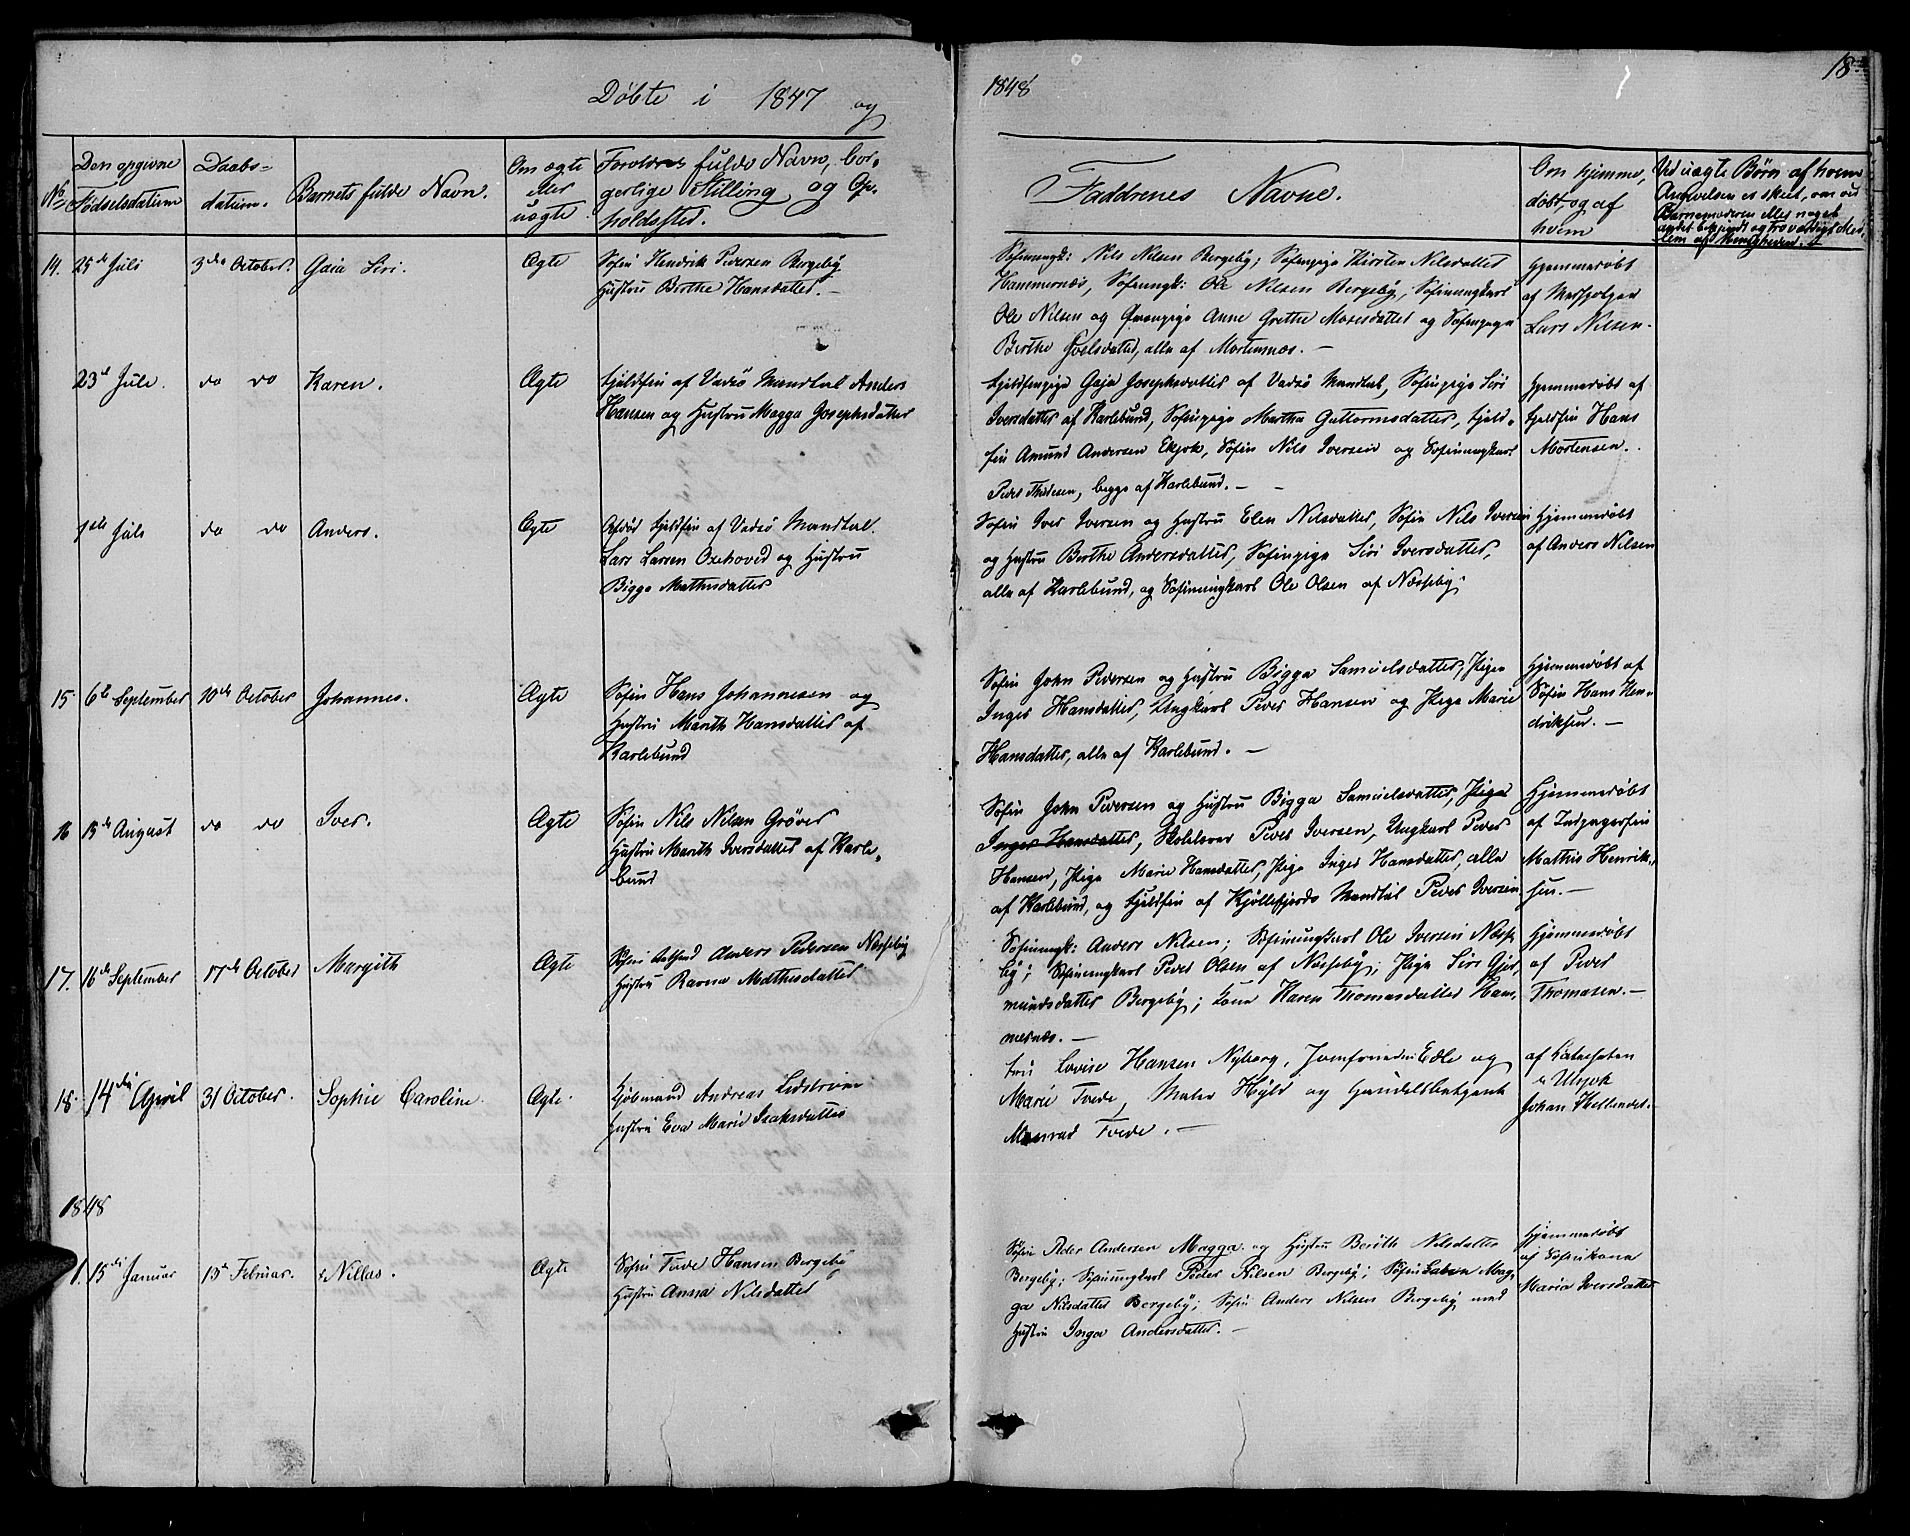 Døbte i 1847 og
1848
18
No
Den opgivne
Fødselsdatum
Daabs-
datum.
Barnets fulde Navn.
Om ægte
eller
uægte.
Forældres fulde Navn, bor-
gerlige Stilling og Op-
holdssted.
Faddrenes Navne.
Om hjemme,
døbt, og af
hvem
Ved uægte Børn af hvem
Angivelsen er skeet, om af
Barnemoderen eller noget
andet bekjendt og troværdigt Med-
lem af Menigheden.
14. 25de Juli
3die October.
Gaia Siri.
Ægte
Søfin Hendrik Pedersen Bergeby
Hustru Birthe Hansdatter. —
Søfinungk: Nils Nilsen Bergeby; Søfinpige Kirsten Nilsdatter
Hammernæs, Søfinungk: Ole Nilsen Bergeby, Søfinungkarl
Ole Nilsen og Qvænpige Anne Grethe Mosesdatter og Søfinpige
Berthe Joelsdatter, alle af Mortensnæs. —
Hjemmedøbt
af
Lars Nilsen.
23de Juli.
do do
Karen.
Ægte
Fjeldfin af Vadsø Mandtal Anders
Hansen og Hustru Magga Josephsdatter
Fjeldfinpige Gaja Josephsdatter af Vadsø Mandtal, Søfinpige Siri
Iversdatter af Karlebund, Søfinpige Martha Guttormsdatter, Fjeld-
fin Amund Andersen, Søfin Nils Iversen og Søfinungkarl
Peder Thudesen, begge af Karlebund. —
Hjemmedøbt af
Fjeldfin Hans
Mortensen.
1ste Juli
do do
Anders.
Ægte
Afdød Fjeldfin af Vadsø Mandtal
Lars Larsen Oxehoved og Hustru
Bigga Mathisdatter
Søfin Iver Iversen og Hustru Elen Nilsdatter, Søfin Nils Iversen
og Hustru Berthe Andersdatter, Søfinpige Siri Iversdatter,
alle af Karlebund, og Søfinungkarl Ole Olsen af Næsseby.
Hjemmedøbt
af Anders Nilsen
15. 6te September
10de October
Johannes.
Ægte
Søfin Hans Johannesen og
Hustru Marith Hansdatter af
Karlebund
Søfin John Pedersen og Hustru Bigga Samuelsdatter, Pige
Inger Hansdatter, Ungkarl Peder Hansen og Pige Marie
Hansdatter, alle af Karlebund. —
Hjemmedøbt af
Søfin Hans Hen-
driksen. —
16 15de August
do do
Iver.
Ægte
Søfin Nils Nilsen Grøver
Hustru Marith Iversdatter af Karle-
bund
Søfin John Pedersen og Hustru Bigga Samuelsdatter, Pige
Inger Hansdatter, Skolelærer Peder Iversen, Ungkarl Peder
Hansen, Pige Marie Hansdatter, Pige Inger Hansdatter, alle
af Karlebund, og Fjeldfin af Kjøllefjords Mandtal Peder Iversen
Hjemmedøbt
af
Mathis Henrik-
sen. —
17. 16de September
17de October
Margith
Ægte
Søfin Anders Pedersen Næsseby
Hustru Ravna Mathisdatter
Søfinungk: Anders Nilsen; Søfinungkarl Ole Iversen Næsse-
by; Søfinungkarl Peder Olsen af Næsseby; Pige Siri Gjer-
mundsdatter Bergeby; Kone Karen Thomasdatter Ham-
mernæs. —
Hjemmedøbt
af Peder
Thomasen. —
18. 14de April
31 October.
Sophie Caroline.
Ægte.
Kjøbmand Andreas Lidstrøm
Hustru Eva Marie Isaksdatter
Fru Lovise Hansen Nyborg, Jomfruerne Edle og
Marie Tvede, Maler Høyld og Handelsbetjent
Monrad Tvede. —
af Kateketen
Johan Hellander.
1848
1. 15de Januar
13de Februar.
Nillas.
Ægte
Søfin Tude Hansen Bergeby
Hustru Anna Nilsdatter
Søfin Peder Andersen Magga og Hustru Berith Nilsdatter
Bergeby; Søfinungkarl Peder Nilsen Bergeby; Søfin Mag-
ga Nilsdatter Bergeby; Søfin Anders Nilsen Bergeby med
Hustru Inga Andersdatter. —
Hjemmedøbt
af Søfinkone
Maria Iversdatter